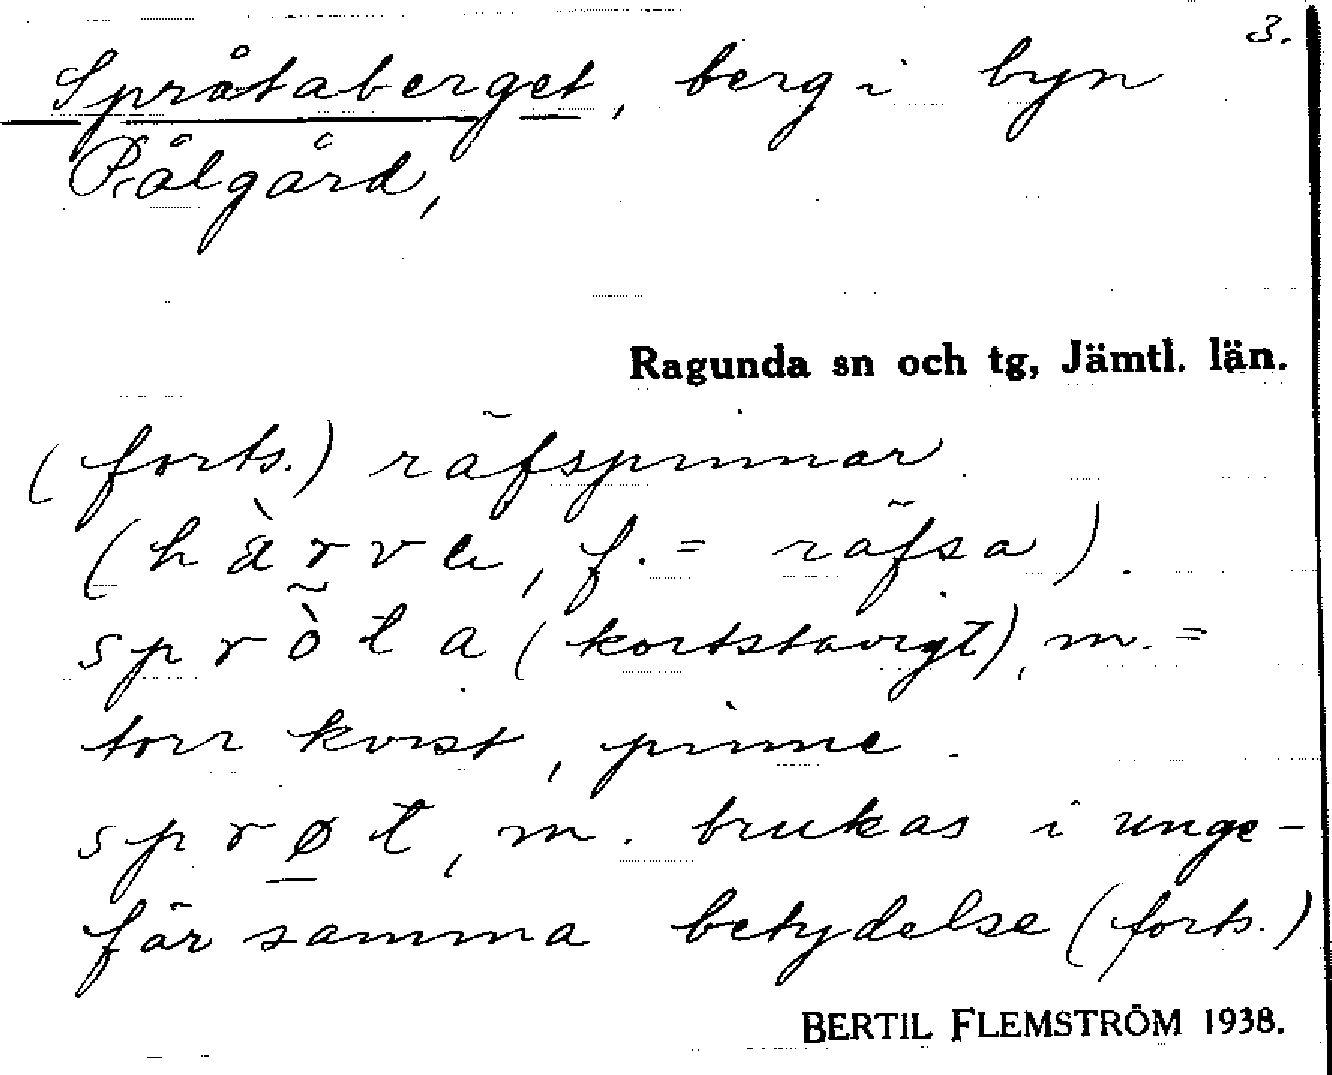 3.
Språtaberget, berg i byn
Pålgård,
Ragunda sn och tg, Jämtl. län.
(forts.) räfspinnar
(hàrva, f. = räfsa).
spròta (kortstavigt), m. =
torr kvist, pinne.
sprøt, m. brukas i unge-
fär samma betydelse (forts.)
BERTIL FLEMSTRÖM 1938.